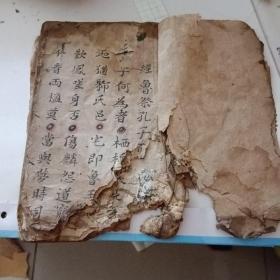 經魯祭孔子
夫子何為者栖栖
邇猶鄹氏邑宅即魯王
歎鳳嗟身否傷麟怨道窮
今看兩楹奠當與夢時同